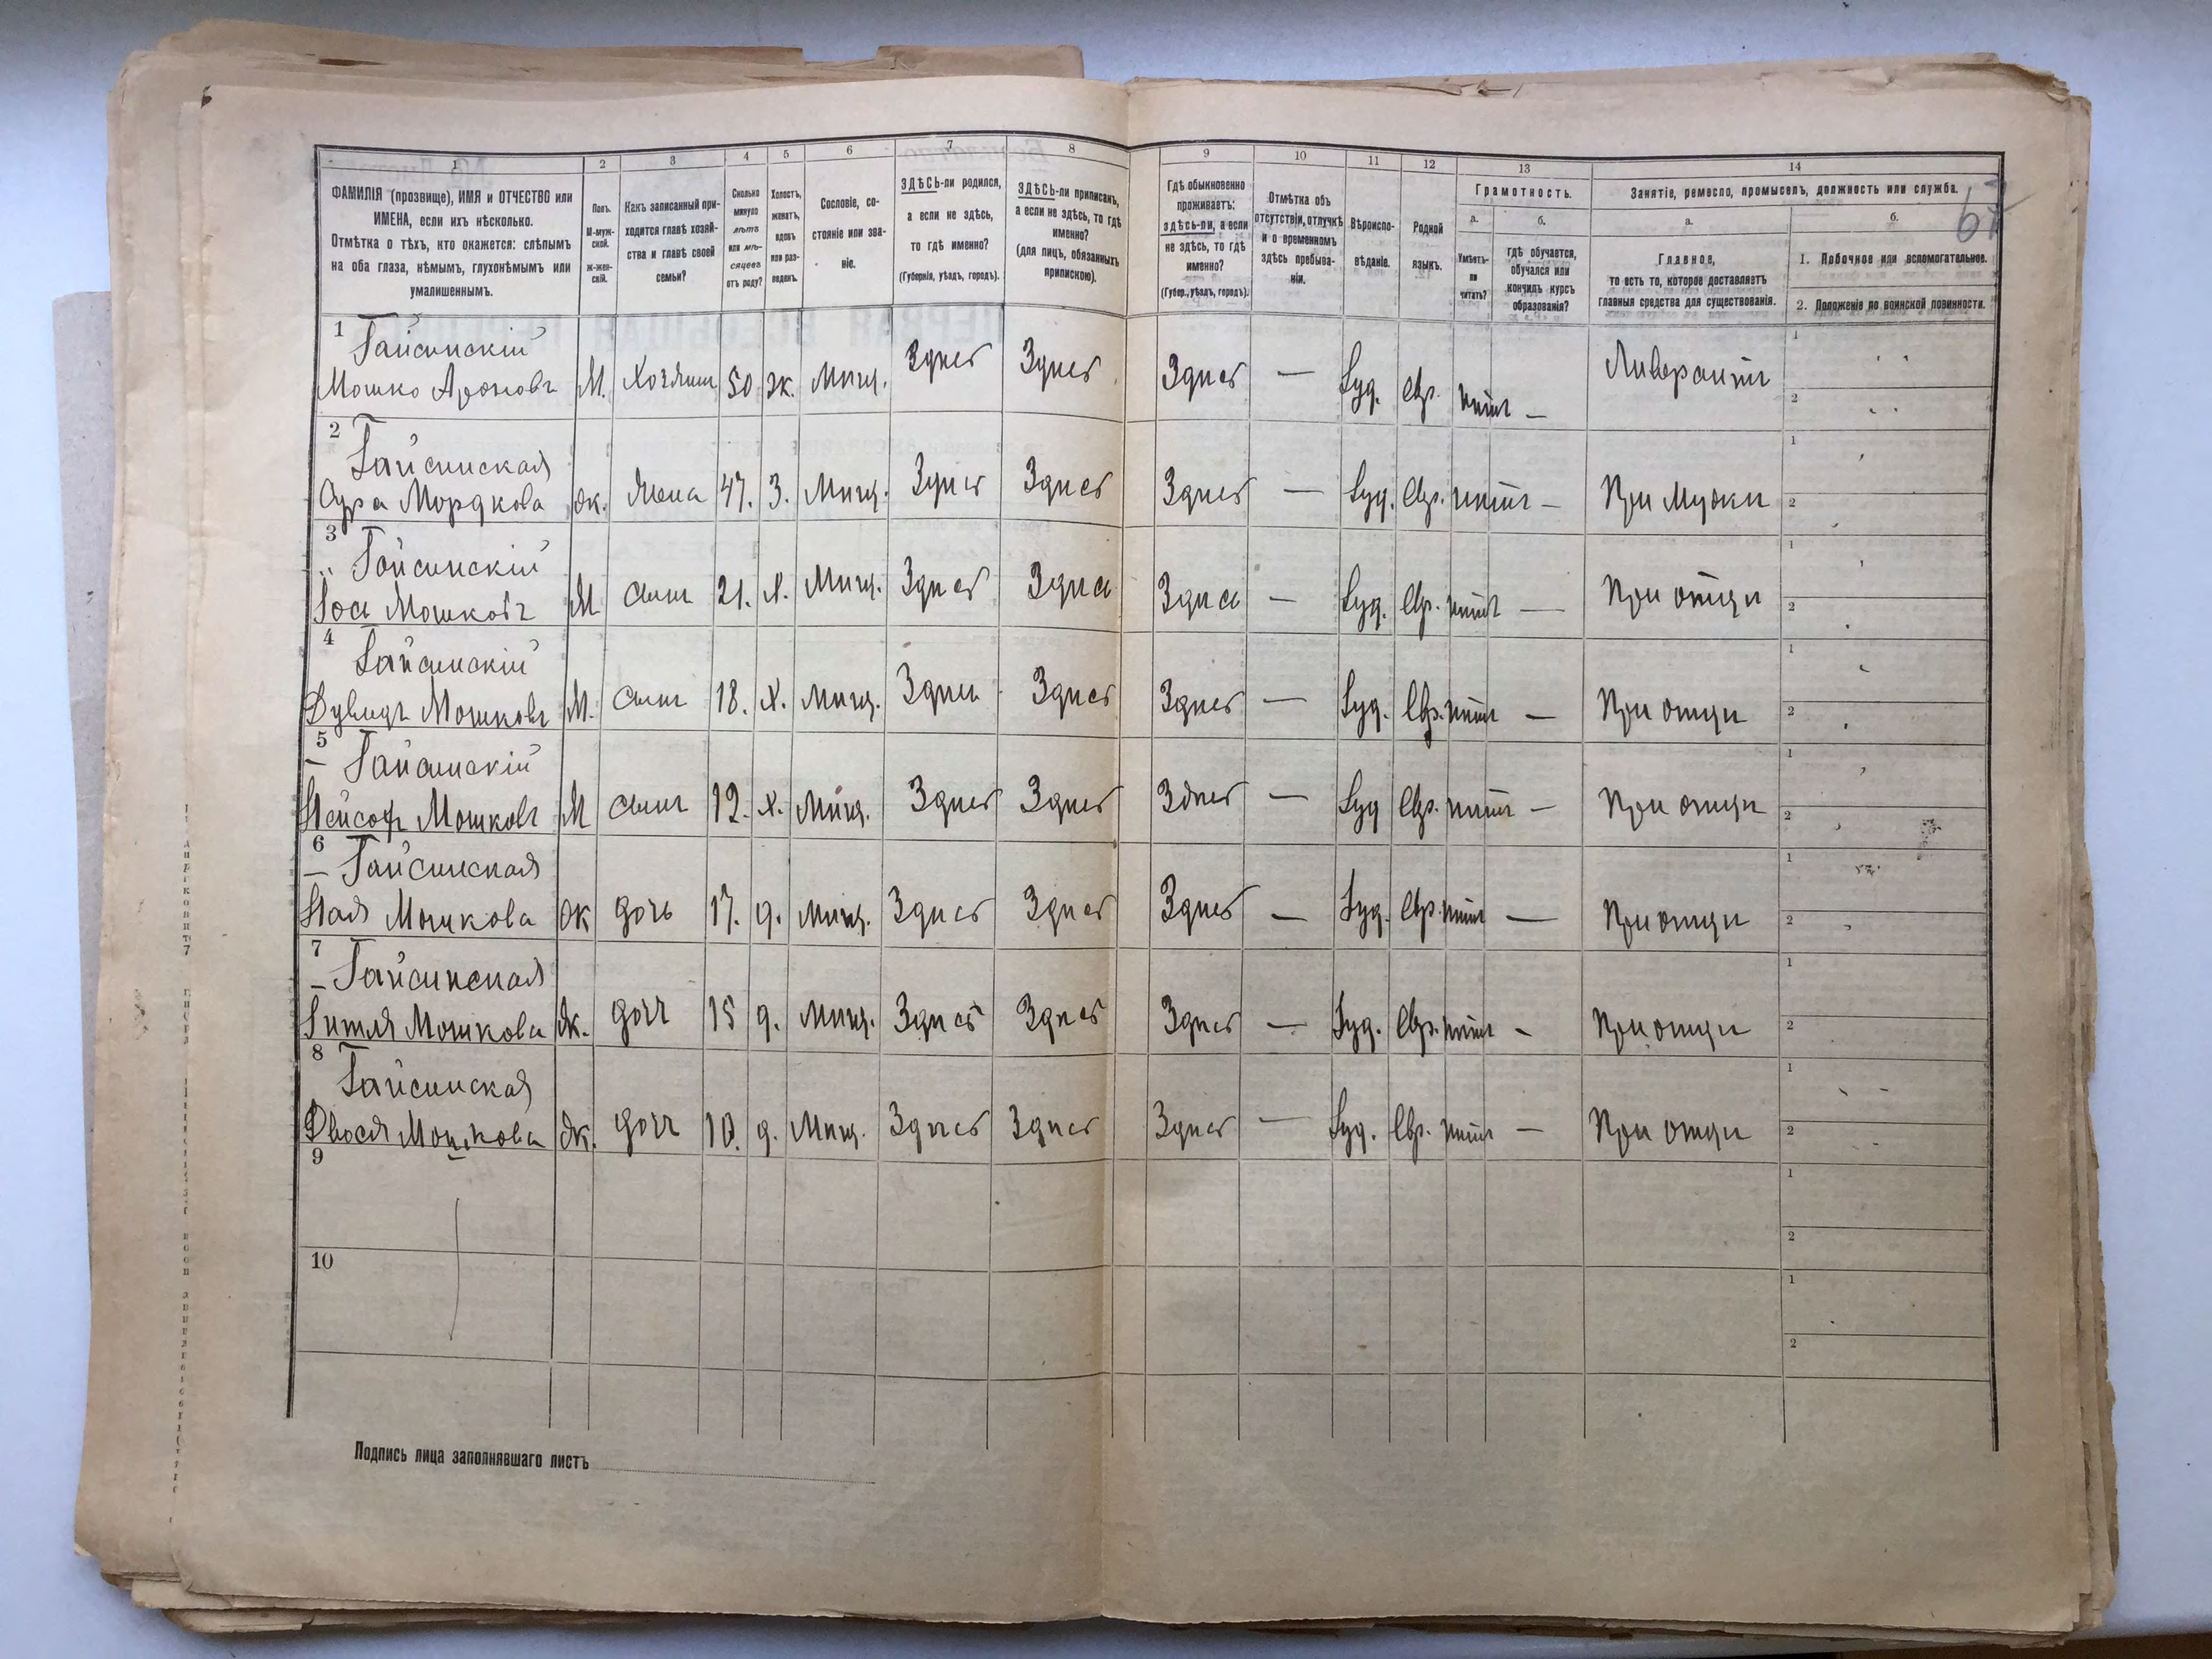 1
ФАМИЛІЯ (прозвище), ИМЯ и ОТЧЕСТВО или
ИМЕНА, если ихъ нѣсколько.
Отмѣтка о тѣхъ, кто окажется: слѣпымъ
на оба глаза, нѣмымъ, глухонѣмымъ или
умалишеннымъ.
2
Полъ.
М-муж-
ской.
ж-жен-
скій.
3
Какъ записанный при-
ходится главѣ хозяй-
ства и главѣ своей
семьи?
4
Сколько
минуло
лѣтъ
или мѣ-
сяцевъ
отъ роду?
5
Холостъ,
женатъ,
вдовъ
или раз-
веденъ.
6
Сословіе, со-
стояніе или зва-
ніе.
7
ЗДѢСЬ-ли родился,
а если не здѣсь,
то гдѣ именно?
(Губернія, уѣздъ, городъ).
8
ЗДѢСЬ-ли приписанъ,
а если не здѣсь, то гдѣ
именно?
(для лицъ, обязанныхъ
припискою).
9
Гдѣ обыкновенно
проживаетъ:
здѣсь-ли, а если
не здѣсь, то гдѣ
именно?
(Губер., уѣздъ, городъ).
10
Отмѣтка объ
отсутствіи, отлучкѣ
и о временномъ
здѣсь пребыва-
ніи.
11
Вѣроиспо-
вѣданіе.
12
Родной
языкъ.
13
Грамотность.
а.
Умѣетъ-
ли
читать?
б.
гдѣ обучается,
обучался или
кончилъ курсъ
образованія?
14
Занятіе, ремесло, промыселъ, должность или служба.
а.
Главное,
то есть то, которое доставляетъ
главныя средства для существованія.
б.
1. Побочное или вспомогательное.
2. Положеніе по воинской повинности.
1 Гайсинскій
Мошко Ароновъ М. Хозяин 50 ж. Мищ. Здиєсъ Здиесъ Здиесъ — Іуд. Евр. нитъ —
1
2
2 Гайсинская
Сура Мордкова ж. жена 47. З. Мищ. Здиесъ Здиесъ Здиесъ — Іуд. Евр. нитъ — При мужи
1
2
3 Гайсинскій
Іос Мошковъ М сынъ 21. х. Мищ. Здиесъ Здиес Здиес — Іуд. Евр. нитъ — При отци
1
2
4 Гайсинскій
Дувидъ Мошковъ М. сынъ 18. х. Мищ. Здиес Здиесъ Здиесъ — Іуд. Евр. нитъ — При отци
1
2
5 — Гайсинскій
Мошковъ М сынъ 12. х. Мищ. Здиесъ Здиесъ Здиесъ — Іуд Евр. нитъ — При отци
1
2
6 — Гайсинская
Мошкова ж дочь 17. д. Мищ. Здиесъ Здиесъ Здиесъ — Іуд. Евр. нитъ — При отци
1
2
7 — Гайсинская
Мошкова ж. дочъ 15 д. Мищ. Здиесъ Здиесъ Здиесъ — Іуд. Евр. нитъ - При отци
1
2
8 Гайсинская
Двося Мошкова ж. дочъ 10. д. Мищ. Здиесъ Здиесъ Здиесъ — Іуд. Евр. нитъ — При отци
1
2
9
1
2
10
1
2
Подпись лица заполнявшаго листъ